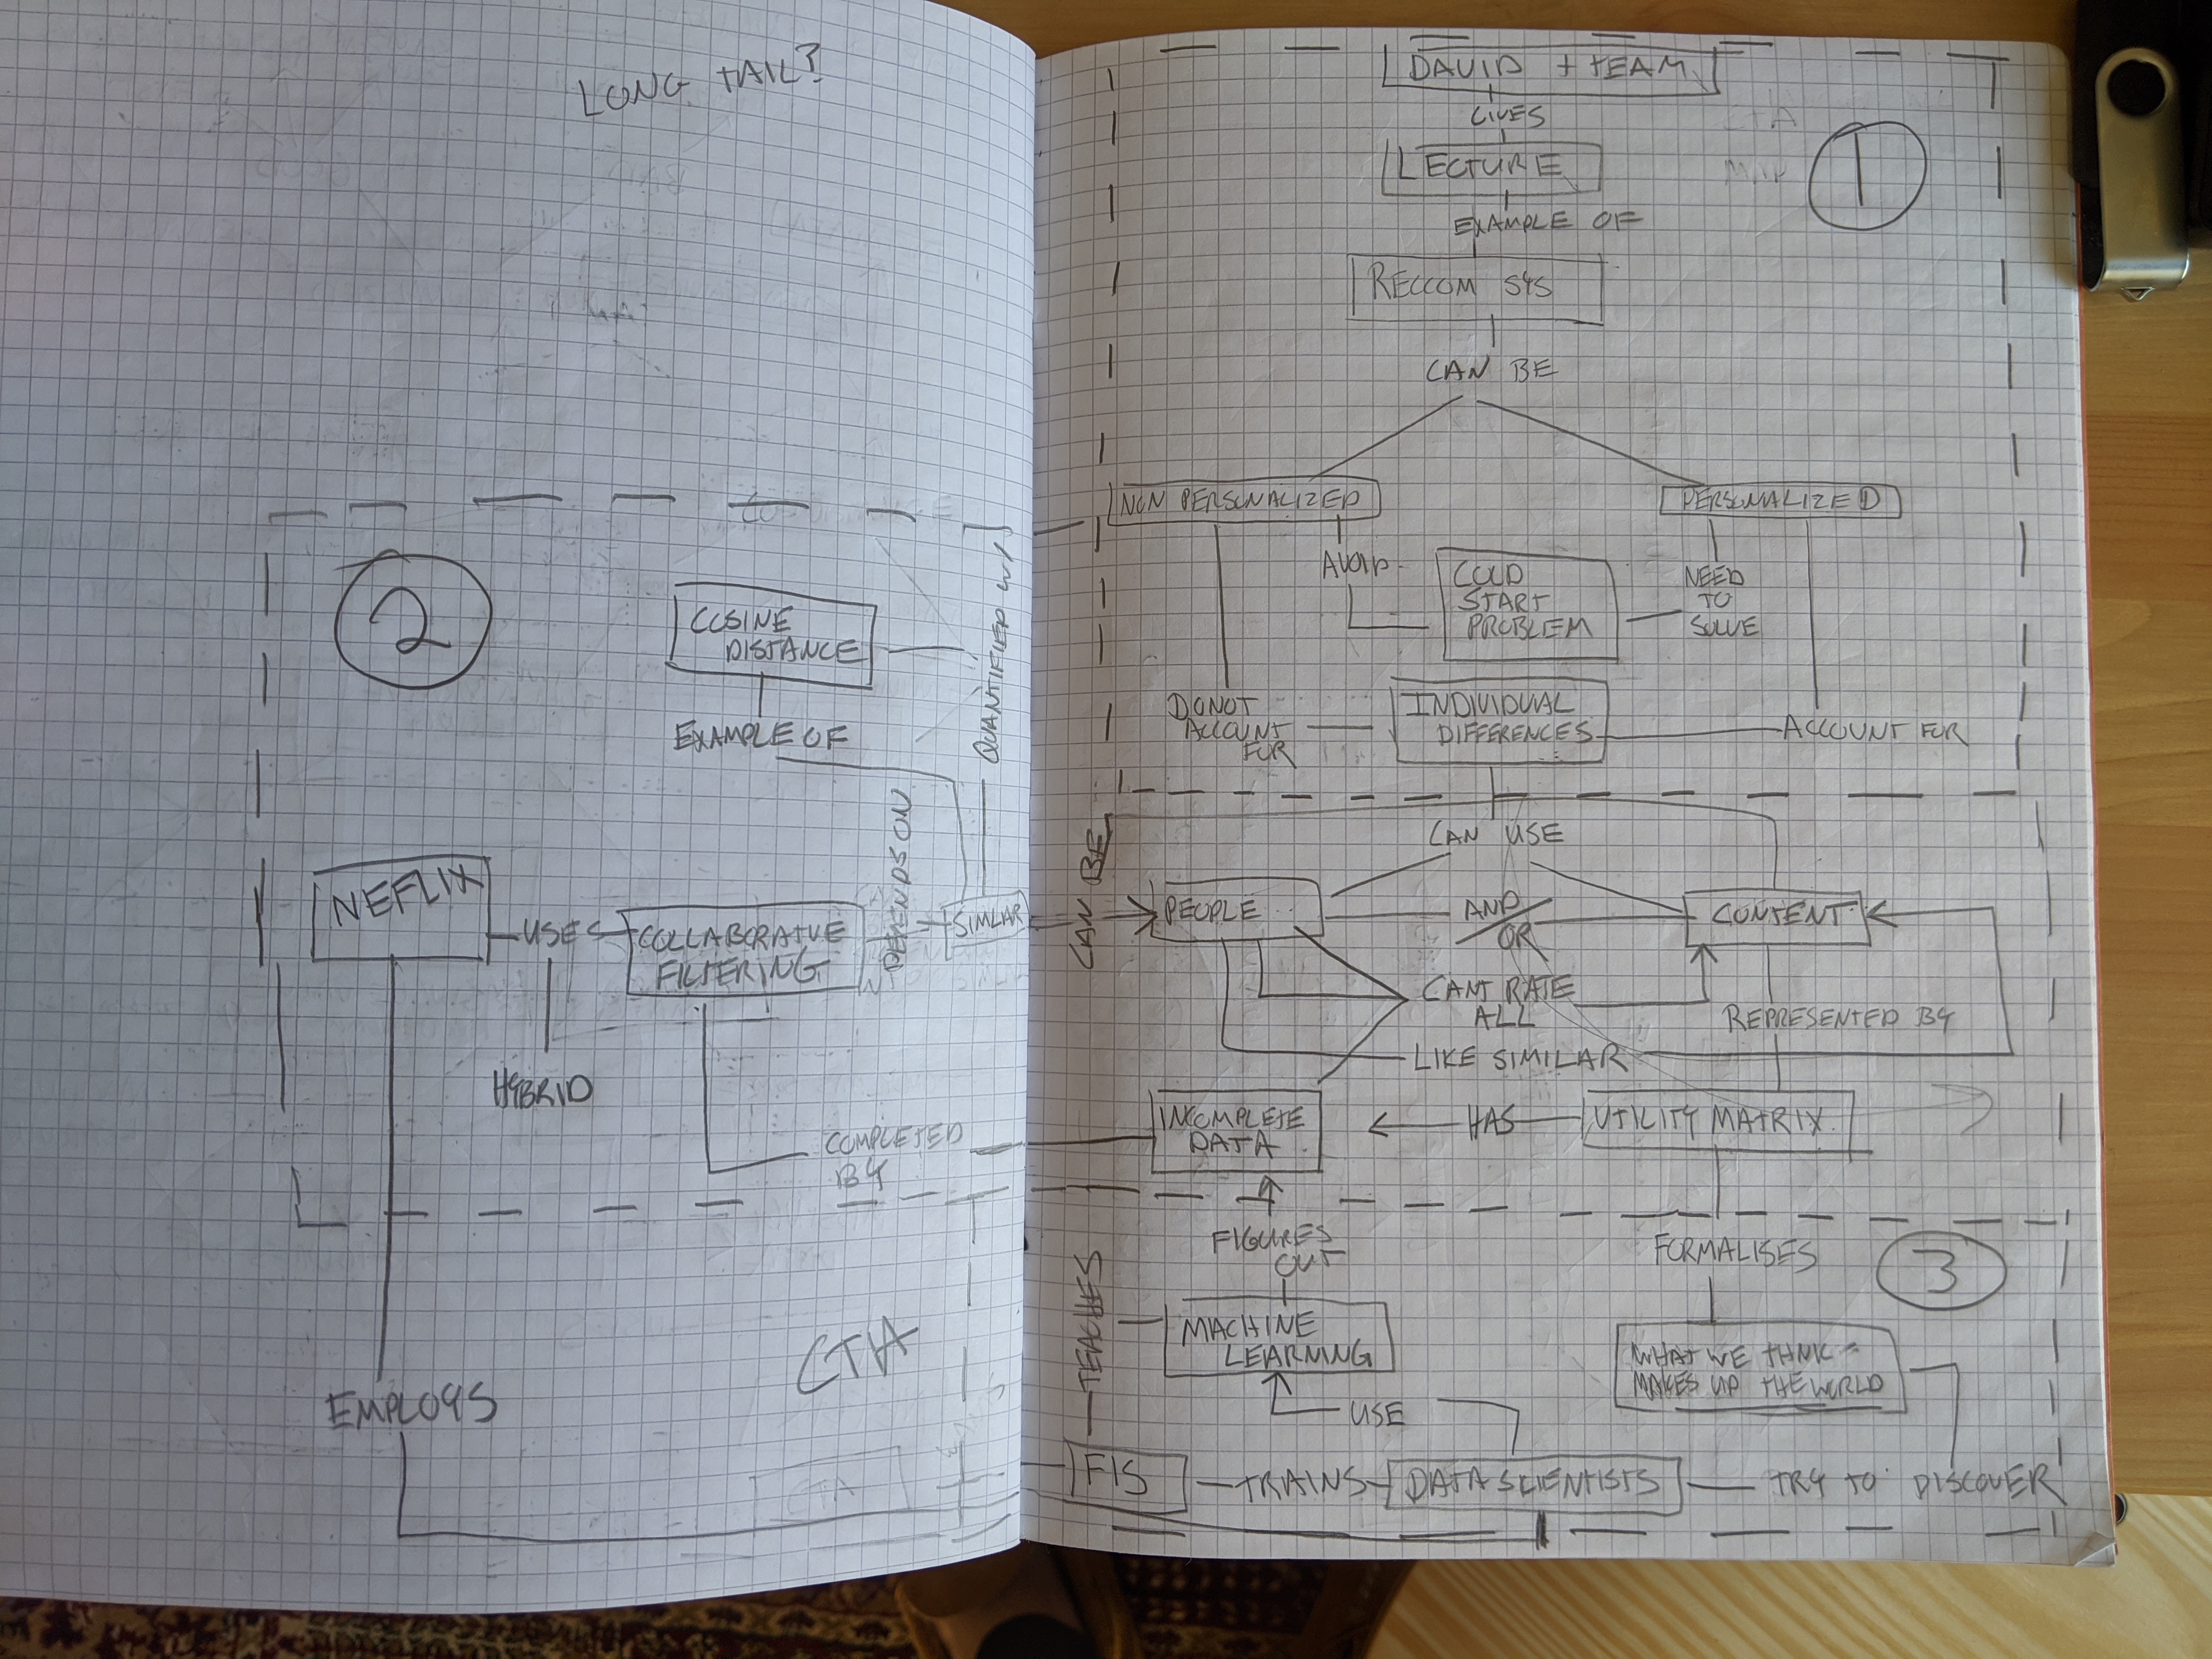 LONG TAIL?
2
COSINE
DISTANCE
EXAMPLE OF
QUANTIFIED W/
DEPENDS ON
NEFLIX
USES
COLLABORATIVE
FILTERING
SIMLAR
HYBRID
COMPLETED
BY
EMPLOYS
CTA
CTA
DAVID + TEAM
GIVES
LECTURE
1
EXAMPLE OF
RECCOM SYS
CAN BE
NON PERSONALIZED
PERSONALIZED
AVOID
COLD
START
PROBLEM
NEED
TO
SOLVE
DO NOT
ACCOUNT
FOR
INDIVIDUAL
DIFFERENCES
ACCOUNT FOR
CAN BE
CAN USE
PEOPLE
AND
OR
CONTENT
CANT RATE
ALL
REPRESENTED BY
LIKE SIMILAR
INCOMPLETE
DATA
HAS
UTILITY MATRIX
FIGURES
OUT
FORMALISES
3
TEACHES
MACHINE
LEARNING
WHAT WE THINK
MAKES UP THE WORLD
USE
FIS
TRAINS
DATA SCIENTISTS
TRY TO DISCOVER